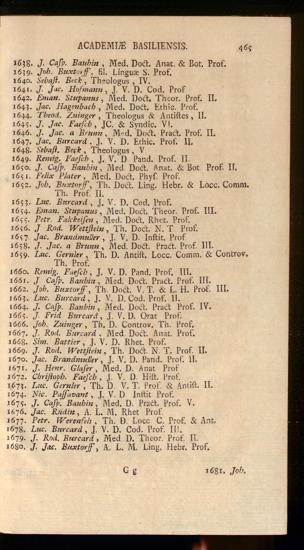 ACADEMIÆ BASILIENSIS. 465
1638. J. Casp. Bauhin, Med. Doct. Anat. & Bot. Prof.
1639. Joh. Buxtorff, fil. Linguæ S. Prof.
1640. Sebast. Beck, Theologus, IV.
1641. J. Jac. Hofmann, J. V. D. Cod. Prof
1642. Eman. Stupanus, Med. Doct. Theor. Prof. II.
1643. Jac. Hagenbach, Med. Doct. Ethic. Prof.
1644. Theod. Zuinger, Theologus & Antistes, II.
1645. J. Jac. Faesch, JC. & Syndic. VI.
1646. J. Jac. a Brunn, Med. Doct. Pract. Prof. II.
1647. Jac. Burcard, J. V. D. Ethic. Prof. II.
1648. Sebast. Beck, Theologus, V
1649. Remig. Faesch, J. V D Pand. Prof. II.
1650. J. Casp. Bauhin, Med Doct. Anat. & Bot Prof. II.
1651. Felix Plater, Med. Doct. Phys. Prof.
1652. Joh. Buxtorff, Th. Doct. Ling. Hebr. & Locc. Comm.
Th. Prof. II.
1653. Luc. Burcard, J. V. D. Cod. Prof.
1654. Eman. Stupanus, Med. Doct. Theor. Prof. III.
1655. Petr. Falckeisen, Med. Doct. Rhet. Prof.
1656. J Rod. Wettstein, Th. Doct. N. T Prof.
1657. Jac. Brandmüller, J. V. D. Instit. Prof
1658. J. Jac. a Brunn, Med. Doct. Pract. Prof. III.
1659. Luc. Gernler, Th. D. Antist. Locc. Comm. & Controv.
Th. Prof.
1660. Remig. Faesch, J. V. D. Pand. Prof. III.
1661. J Casp. Bauhin, Med. Doct. Pract. Prof. III.
1662. Joh. Buxtorff, Th. Doct. V. T. & L. H. Prof. III.
1663. Luc. Burcard, J. V. D. Cod. Prof. II.
1664. J. Casp. Bauhin, Med. Doct. Pract Prof. IV.
1665. J. Frid Burcard, J. V D. Orat Prof.
1666. Joh. Zuinger, Th. D. Controv. Th. Prof.
1667. J. Rod. Burcard. Med. Doct. Anat. Prof.
1668. Sim. Battier, J. V. D. Rhet. Prof.
1669. J. Rod. Wettstein, Th. Doct. N. T. Prof. II.
1670. Jac. Brandmüller, J. V. D. Pand. Prof. II.
1671. J. Henr. Glaser, Med. D. Anat Prof
1672. Christoph. Faesch, J. V. D. Hist. Prof.
1673. Luc. Gernler, Th. D. V. T. Prof & Antist. II.
1674. Nic. Passavant, J. V. D Instit Prof.
1675. J. Casp. Bauhin, Med. D. Pract. Prof. V.
1676. Jac. Rüdin, A. L. M. Rhet Prof
1677. Petr. Werenfels, Th. D. Locc C. Prof. & Ant.
1678. Luc. Burcard, J. V. D. Cod. Prof. III.
1679. J. Rod. Burcard, Med D. Theor. Prof. II.
1680. J. Jac. Buxtorff, A. L. M. Ling. Hebr. Prof.
G g 1681. Joh.